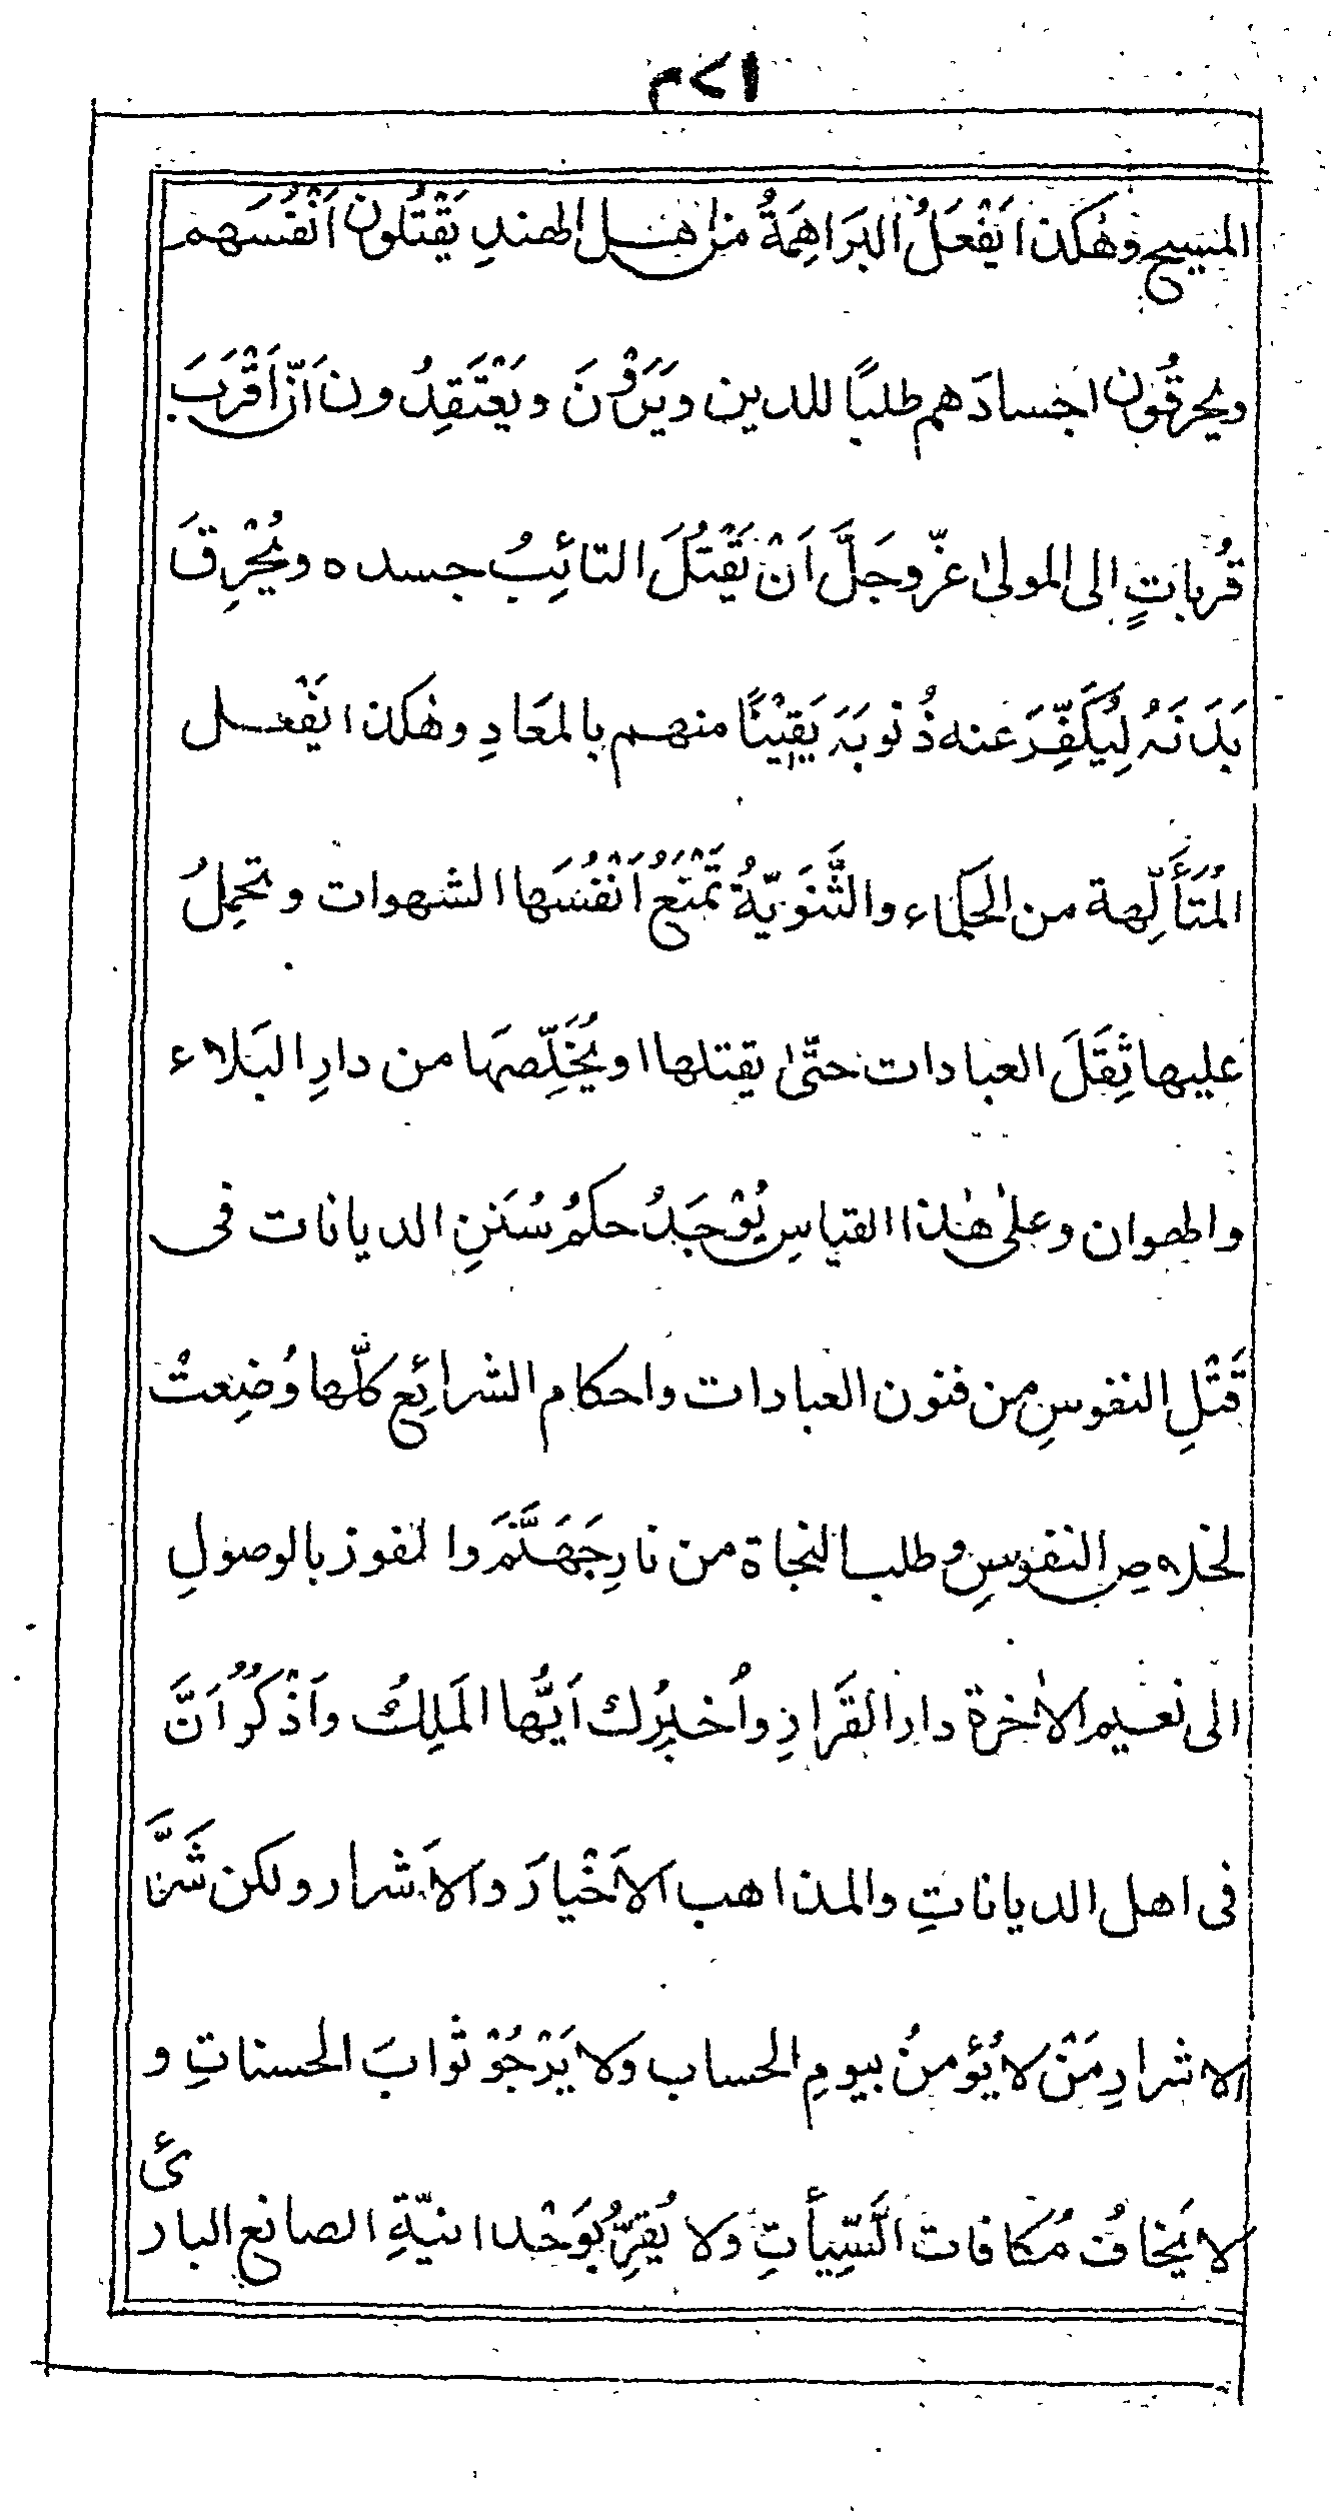 ٤٧١
المسيح وهٰكذا يَفْعَلُ البَرَاهِمَةُ من اهل الهندِ يَقْتُلون اَنْفُسَهم
ويحرقُون اجسادَهم طلبًا للدين ويَرَوْنَ ويَعْتَقِدُون اَنّ اَقْرَبَ
قُرباتٍ الى المولىٰ عزّوجَلَّ اَنْ يَقْتُلَ التائِبُ جسده ويُحْرِقَ
بَدَنَهُ لِيُكَفِّرَ عنه ذُنوبَهَ يَقِيْنًا منهم بالمعَادِ وهٰكذا يَفْعل
المُتَأَلِّهة من الحكماء والثَّنَوِيّةُ تَمْنَعُ اَنْفُسَها الشهوات وتحمِلُ
عليها ثِقَلَ العبادات حتّىٰ يقتلها او يُخَلِّصهَا من دارِ البَلاء
والهوان وعلىٰ هٰذا القياسِ يُوْجَدُ حكمُ سُنَنِ الديانات فى
قَتْلِ النفوسِ من فنون العبادات واحكام الشرائِع كلّها وُضِعتْ
لخلاصِ النفوسِ وطلب النجاة من نارِ جَهَنَّمَ والفوز بالوصولِ
الى نعيم الاٰخرة دار القَرَارِ واُخبِرُك اَيُّها المَلِكُ واَذْكُرُ اَنَّ
فى اهل الدياناتِ والمذاهب الاَخْيارَ والاَشرار ولكن شَرَّ
الاشرارِ مَنْ لا يُؤمنُ بيومِ الحساب ولا يَرْجُوْ ثوابَ الحسناتِ و
لا يَخافُ مُكافات السَّيِّأتِ ولا يُقِرُّ بوَحْدانيّةِ الصانع البارئ